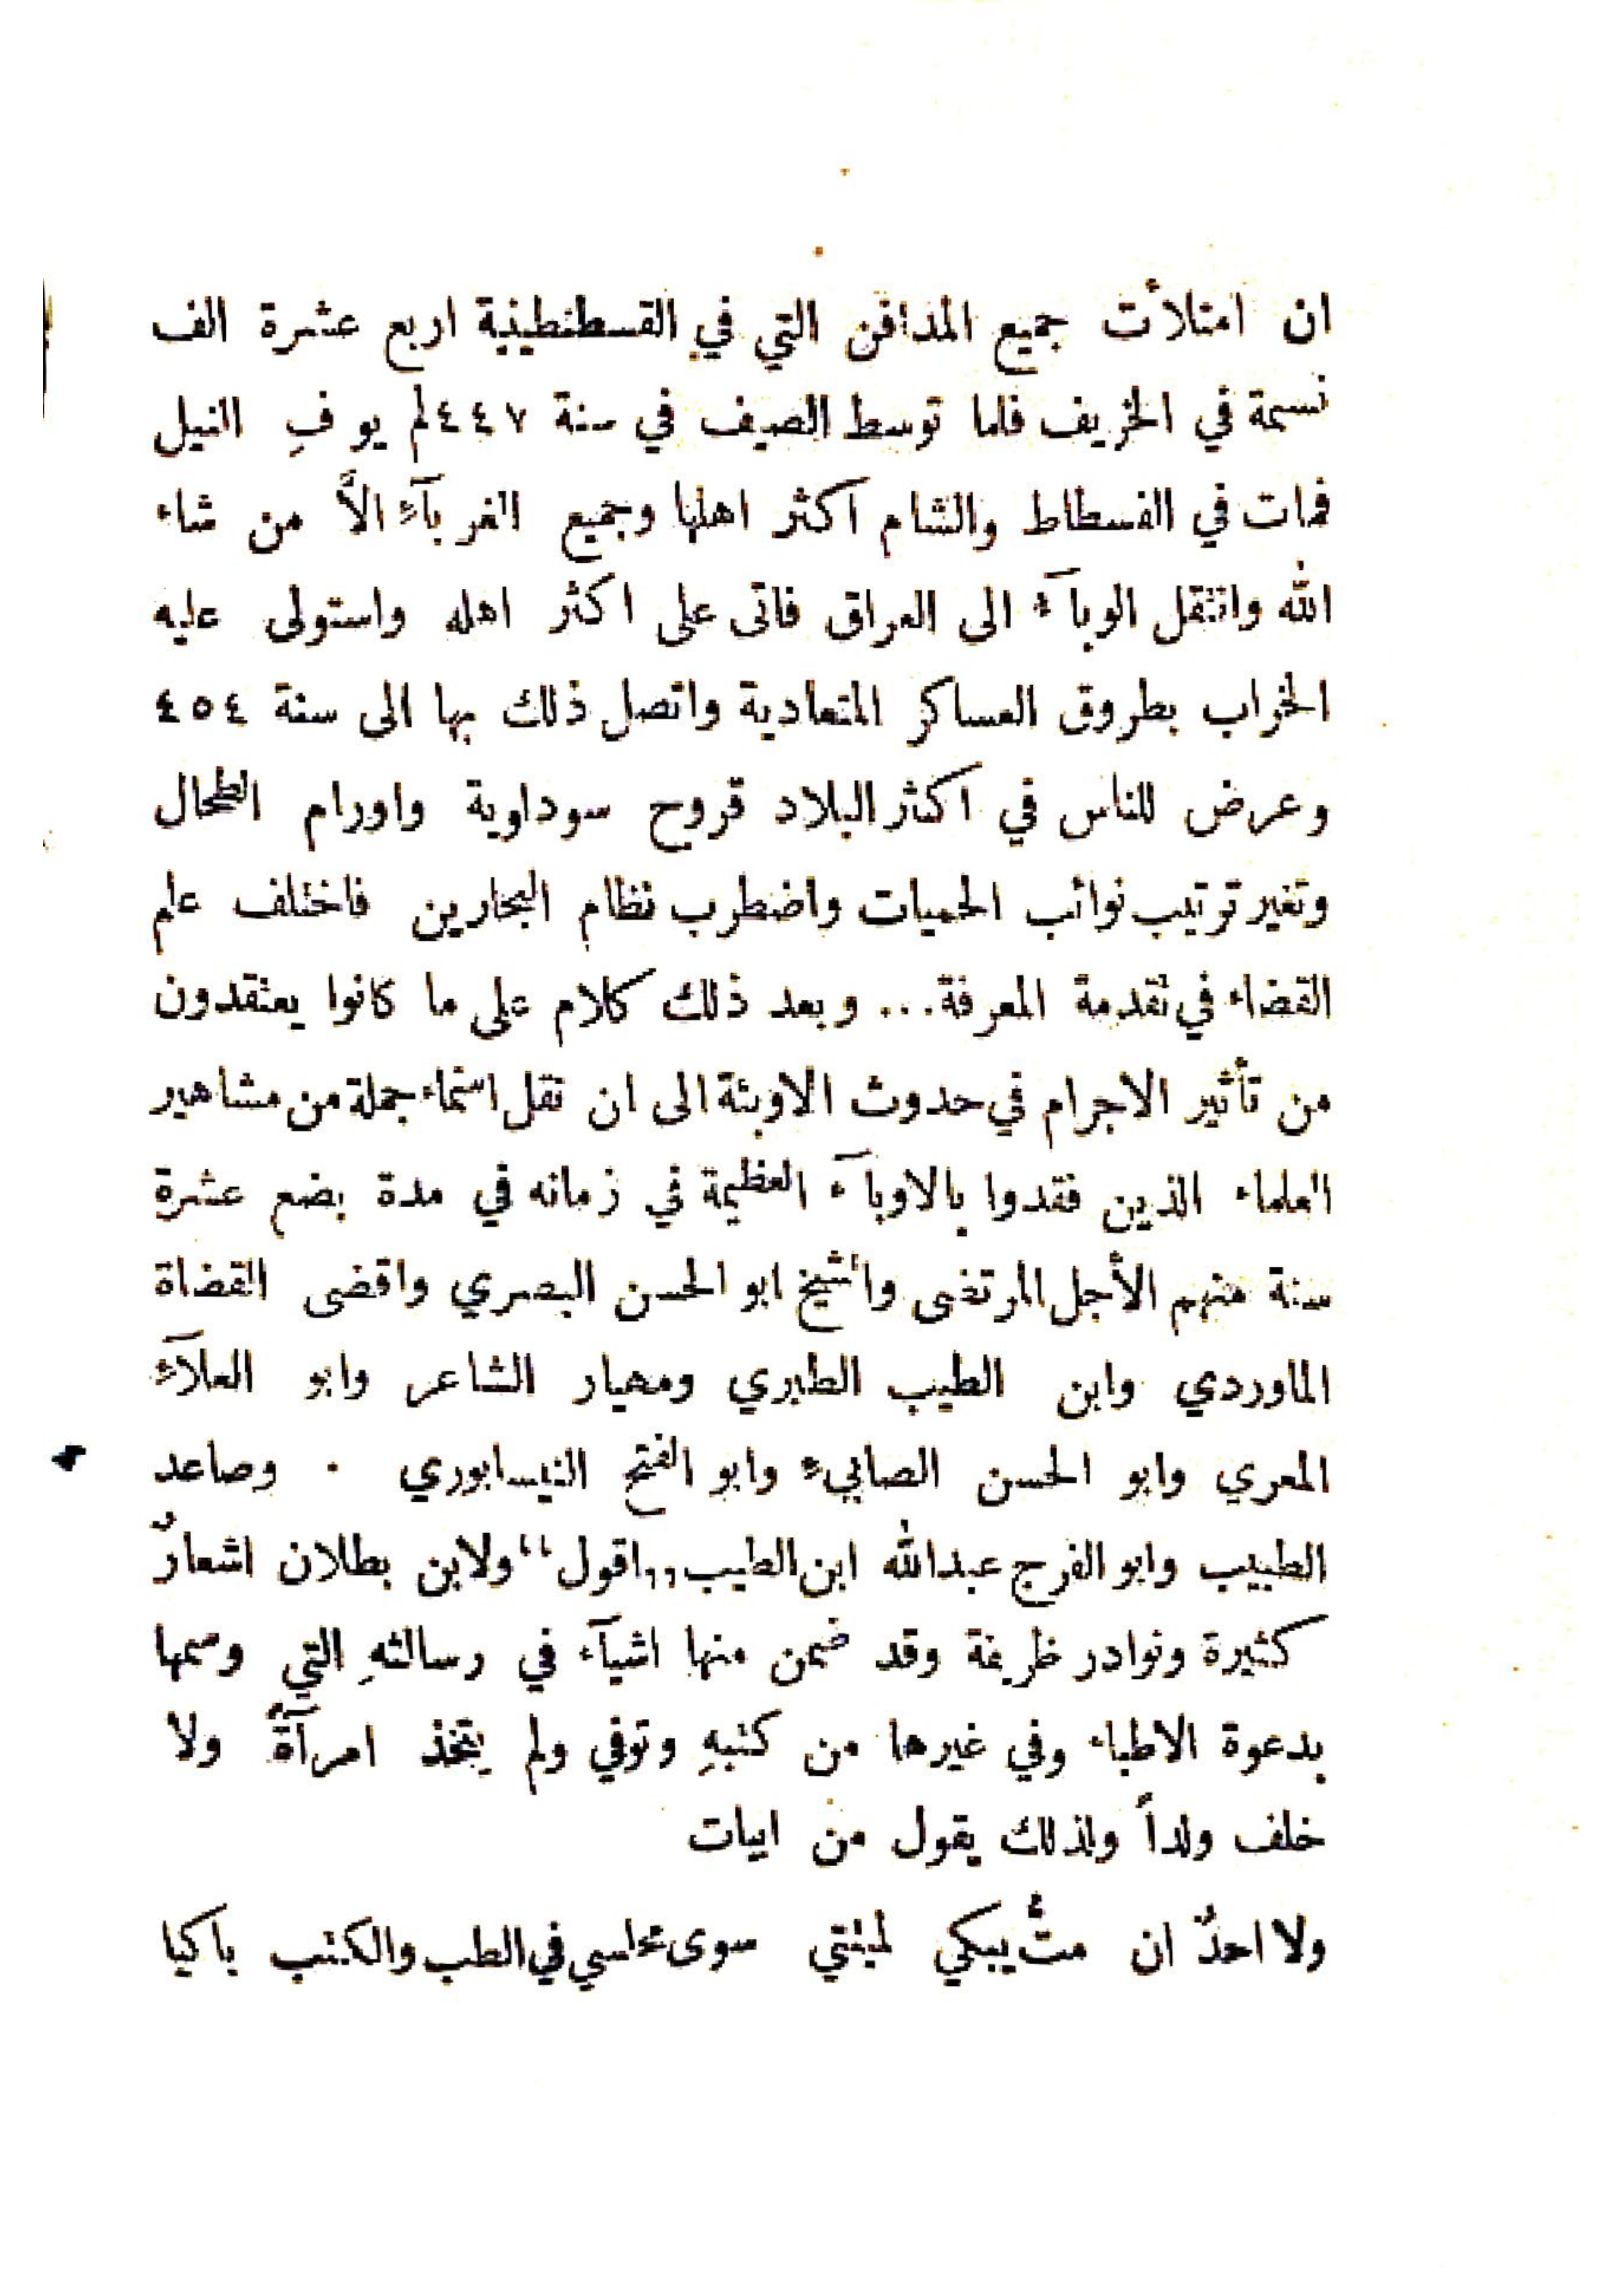 ان امتلأت جميع المدافن التي في القسطنطينية اربع عشرة الف
نسمة في الخريف فلما توسط الصيف في سنة ٤٤٧ لم يوفِ النيل
فمات في الفسطاط والشام اكثر اهلها وجميع الغربآء الاَّ من شاء
الله وانتقل الوبآء الى العراق فاتى على اكثر اهله واستولى عليه
الخراب بطروق العساكر المتعادية واتصل ذلك بها الى سنة ٤٥٤
وعرض للناس في اكثر البلاد قروح سوداوية واورام الطحال
وتغير ترتيب نوائب الحميات واضطرب نظام البحارين فاختلف علم
القضاء في تقدمة المعرفة... وبعد ذلك كلام على ما كانوا يعتقدون
من تأثير الاجرام في حدوث الاوبئة الى ان نقل اسماء جملة من مشاهير
العلماء الذين فقدوا بالاوبآء العظيمة في زمانه في مدة بضع عشرة
سنة منهم الأجل المرتضى والشيخ ابو الحسن البصري واقضى القضاة
الماوردي وابن الطيب الطبري ومهيار الشاعر وابو العلآء
المعري وابو الحسن الصابيء وابو الفتح النيسابوري . وصاعد
الطبيب وابو الفرج عبدالله ابن الطيب ,,اقول“ ولابن بطلان اشعارٌ
كثيرة ونوادر ظريفة وقد ضمن منها اشيآء في رسالتهِ التي وسمها
بدعوة الاطباء وفي غيرها من كتبهِ وتوفي ولم يتخذ امرآةً ولا
خلف ولداً ولذلك يقول من ابيات
ولا احدٌ ان متُّ يبكي لميتتي سوى مجلسي في الطب والكتب باكيا